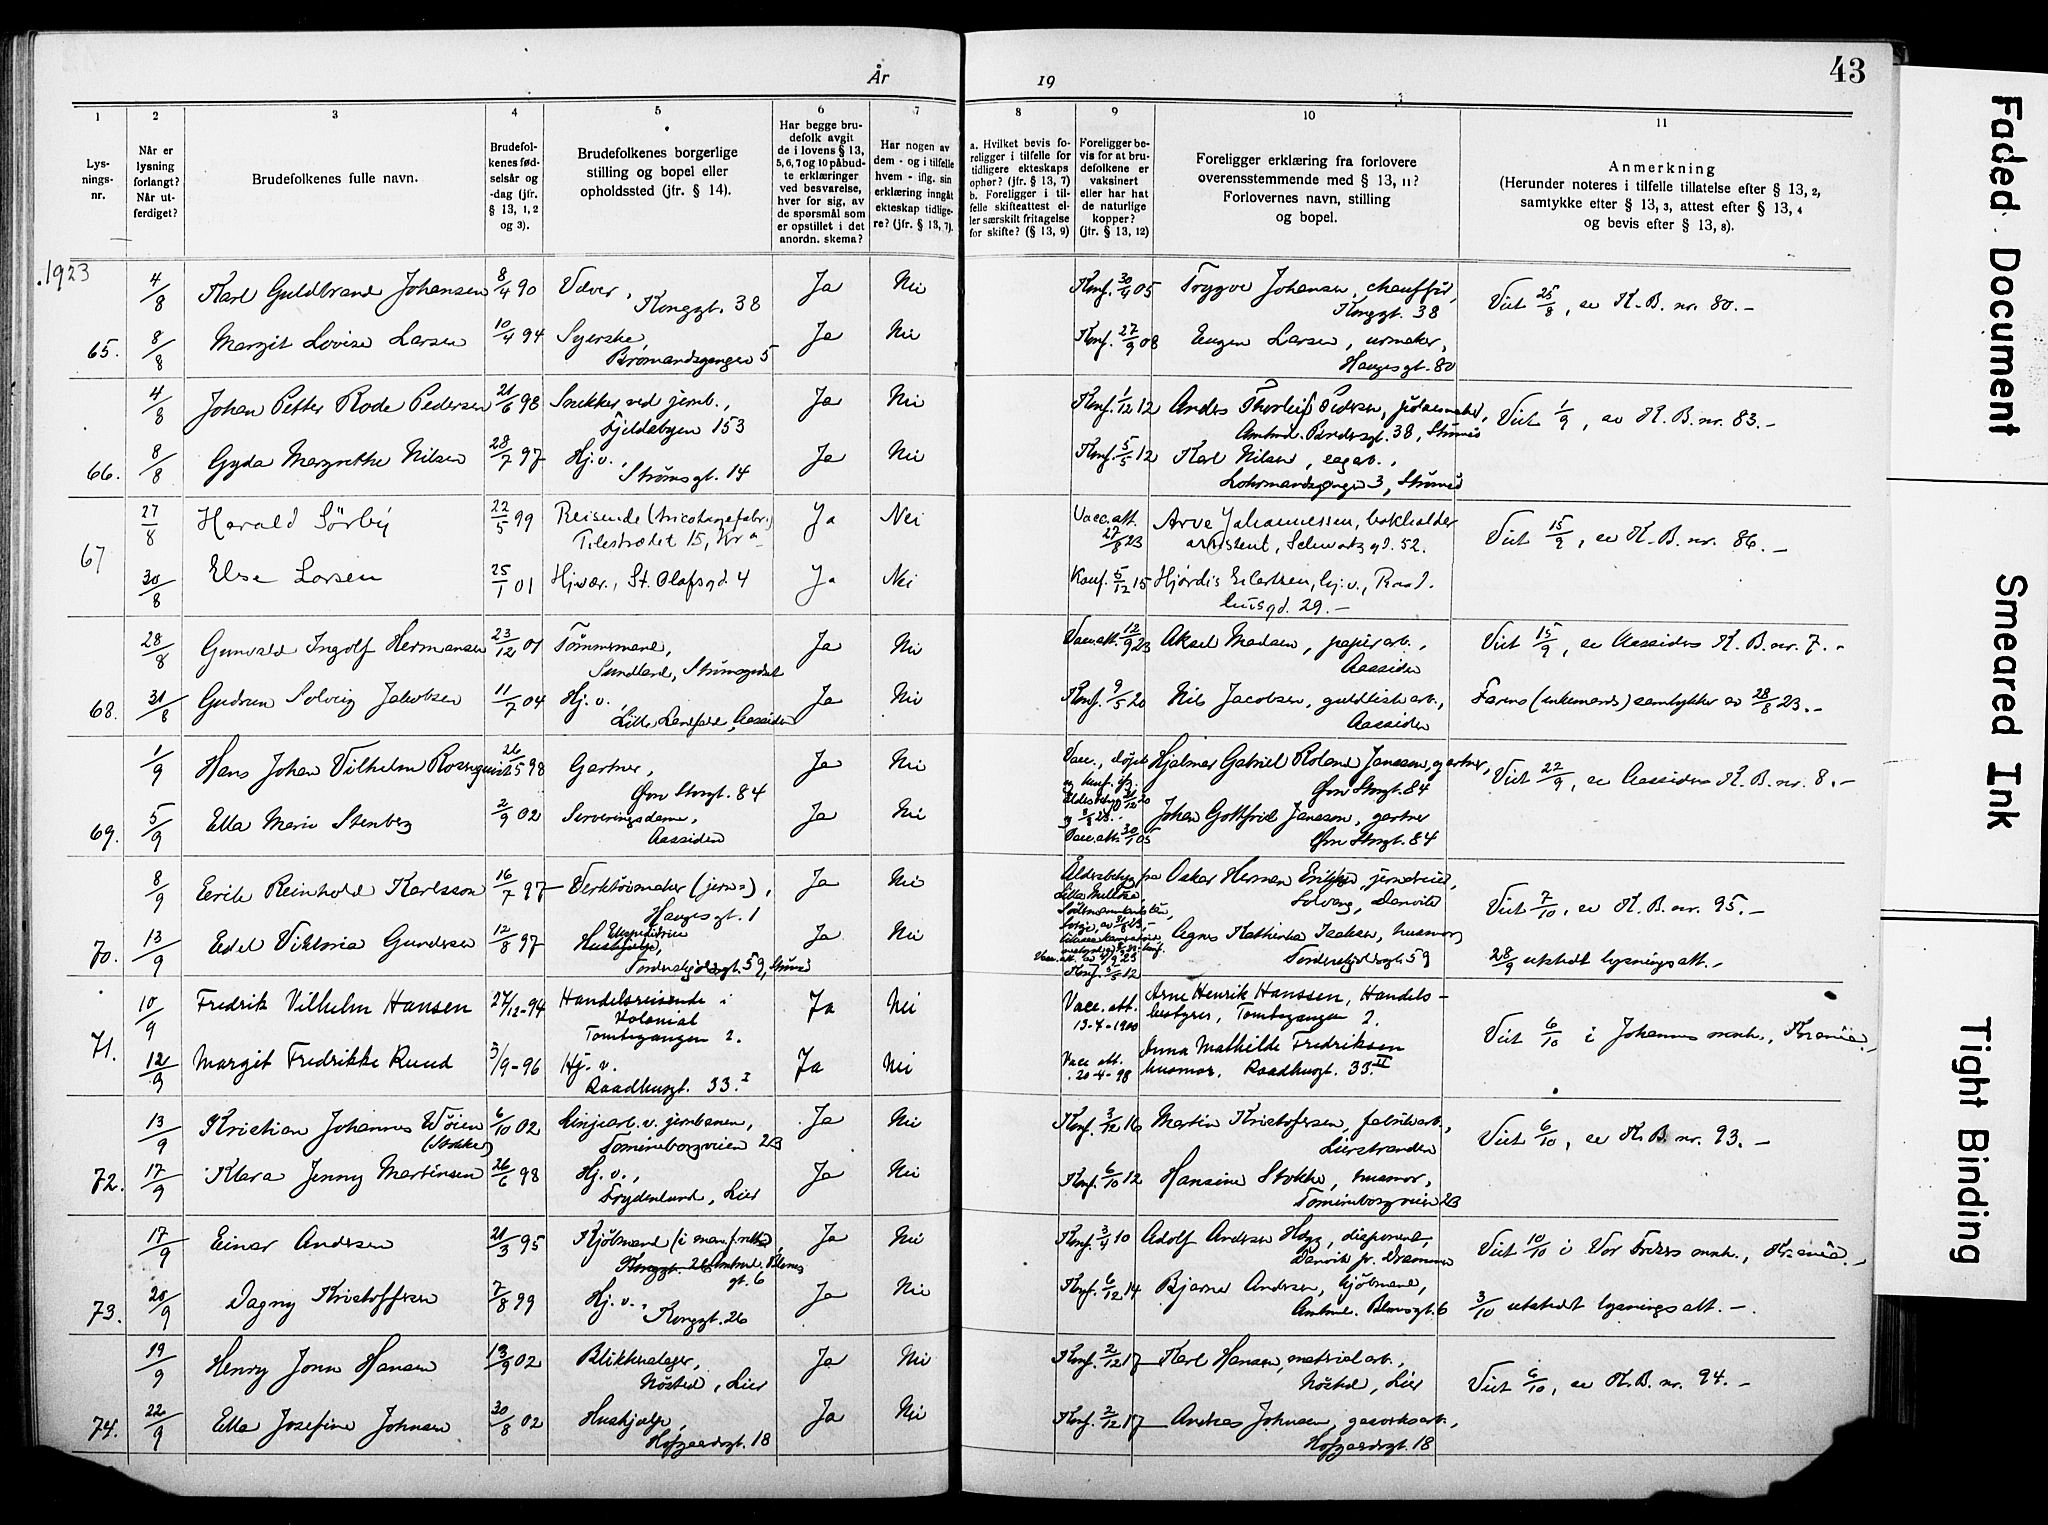 År
19
43
1
Lys-
nings-
nr.
2
Når er
lysning
forlangt?
Når ut-
ferdiget?
3
Brudefolkenes fulle navn.
4
Brudefol-
kenes fød-
selsår og
-dag (jfr.
§ 13, 1, 2
og 3).
5
Brudefolkenes borgerlige
stilling og bopel eller
opholdssted (jfr. § 14).
6
Har begge bru-
defolk avgit
de i lovens § 13,
5, 6, 7 og 10 påbud-
te erklæringer
ved besvarelse,
hver for sig, av
de spørsmål som
er opstillet i det
anordn. skema?
7
Har nogen av
dem - og i tilfelle
hvem - iflg. sin
erklæring inngåt
ekteskap tidlige-
re? (jfr. § 13, 7).
8
a. Hvilket bevis fo-
religger i tilfelle for
tidligere ekteskaps
ophør? (jfr. § 13, 7)
b. Foreligger i til-
felle skifteattest el-
ler særskilt fritagelse
for skifte? (§ 13, 9)
9
Foreligger be-
vis for at bru-
defolkene er
vaksinert
eller har hat
de naturlige
kopper?
(jfr. § 13, 12)
10
Foreligger erklæring fra forlovere
overensstemmende med § 13, 11?
Forlovernes navn, stilling
og bopel.
11
Anmerkning
(Herunder noteres i tilfelle tillatelse efter § 13, 2,
samtykke efter § 13, 3, attest efter § 13, 4
og bevis efter § 13, 8).
1923
4/8 Karl Guldbrand Johansen 8/4 90 Væver, Ja Nei Konf. 30/4 05 Trygve Johansen, chauffør, Viet 25/8, se K. B. nr. 80.-
Konggt. 38 Konggt. 38
65. 8/8 Margit Lovise Larsen 10/4 94 Syerske, Ja Nei Konf. 27/9 08 Eugen Larsen, urmaker,
Brømandsgangen 5 Haugesgt. 80
4/8 Johan Petter Rode Pedersen 21/6 98 Snekker ved jernb., Ja Nei Konf. 1/12 12 Anders Thorleif Pedersen, Viet 1/9, se K. B. nr. 83.-
Fjeldabyen 153 38, Strømsø
66. 8/8 Gyda Margrethe Nilsen 28/7 97 Hj.v., Ja Nei Konf. 5/5 12 Karl Nilsen,
Strømsgt. 14 3, Strømsø
27/8 Harald Sörby 22/5 99 Reisende (tricotagefabr.) Ja Nei Vacc. att. 27/8 23 Arve Johannessen, bokholder Viet 15/9, se K. B. nr. 86.-
15, Kra assistent, Schwartzgd. 52.
67 30/8 Else Larsen 25/1 01 Hjvær., St. Olafsgd. 4 Ja Nei Konf. 5/12 15 Hjørdis Eilertsen, hj. v., Raad-
husgd. 29.-
28/8 Gunvald Ingolf Hermansen 23/12 01 Tømmermand, Ja Nei Vacc. att. 12/9 23 Aksel Madsen, papirarb., Viet 15/9, se Aassidens K. B. nr. 7.-
Sundland, Strømsgodset Aassiden
68. 31/8 Gudrun Solveig Jakobsen 11/7 04 Hj. v. Ja Nei Konf. 9/5 20 Nils Jacobsen, guldlistarb., Farens (enkemands) samtykke av 28/8 23.-
Lille Landfald, Aassiden Aassiden
1/9 Hans Johan Vilhelm Rosenqvist 26/5 98 Gartner, Ja Nei Vacc., døpt Hjalmar Gabriel Roland Jansson, gartner, Viet 22/9, se Aassidens K. B. nr. 8.-
Øvn Storgt. 84 og konf. Øvn Storgt. 84
69. 5/9 Ella Marie Stenberg 2/9 02 Serveringsdame, Ja Nei Johan Gottfried Jansson, gartner
Aassiden Vacc. att. 30/1 05 Øvn Storgt. 84
8/9 Eerik Reinhold Karlsson 16/7 97 Verktøimaker (jern-), Ja Nei Åldersbetyg fra Oskar Herman Solvang, Danvik Viet 7/10, se K. B. nr. 95.-
Haugesgt. 1
70. 13/9 Edel Viktoria Gundersen 12/8 97 Ekspeditrice Ja Nei Agnes Kathinka Isaksen, husmor, 28/9 utstedt lysningsatt.-
Hushjelp,
Tordenskjoldsgt. 59, Strømsø Konf. 5/5 12 Tordenskjoldsgt. 59
10/9 Fredrik Vilhelm Hansen 27/12-94 Handelsreisende i Ja Nei Vacc. att. Arne Henrik Hanssen, Handels-
Kolonial 13-4-1900 bestyrer, Tomtegangen 2. Viet 6/10 i Johannes mnh., Krania.-
Tomtegangen 2.
71. 12/9 Margit Fredrikke Ruud 3/9-96 Hj. v. Ja Nei Vacc. att. Anna Mathilde Fredriksen
Raadhusgt. 33.I 20-4-98 husmor. Raadhusgt. 33.II
13/9 Kristian Johannes Wöien 6/10 02 Linjearb. v. jernbanen, Ja Nei Konf. 3/12 16 Martin Kristofersen, fabrikarb., Viet 6/10, se K. B. nr. 93.-
(Stokke) Tomineborgveien 23 Lierstranden
72. 17/9 Klara Jenny Martinsen 26/6 98 Hj. v., Ja Nei Konf. 6/10 12 Hansine Stokke, husmor,
Frydenlund, Lier Tomineborgveien 23
17/9 Einar Andersen 21/3 95 Kjøbmand Ja Nei Konf. 3/4 10 Adolf Andersen Høyg, disponent, Viet 10/10 i Vor Frelsers mnh., Krania.-
Konggt. 26 Amtmd. Bloms Danvik pr. Drammen
gt. 6
73. 20/9 Dagny Kristoffersen 7/8 99 Hj. v., Ja Nei Konf. 6/12 14 Bjarne Andersen, kjøbmand, 3/10 utstedt lysningsatt.-
Konggt. 26 Amtmd. Blomsgt. 6
19/9 Henry Jonn Hansen 13/9 02 Blikkenslager, Ja Nei Konf. 2/12 17 Karl Hansen, materialarb., Viet 6/10, se K. B. nr. 94.-
Nøsted, Lier Nøsted, Lier
74. 22/9 Ella Josefine Johnsen 30/8 02 Hushjælp, Ja Nei Konf. 2/12 17 Andreas Johnsen, gasverksarb.,
Hofgaardsgt. 18 Hofgaardsgt. 18
Faded Document
Smeared Ink
Tight Binding